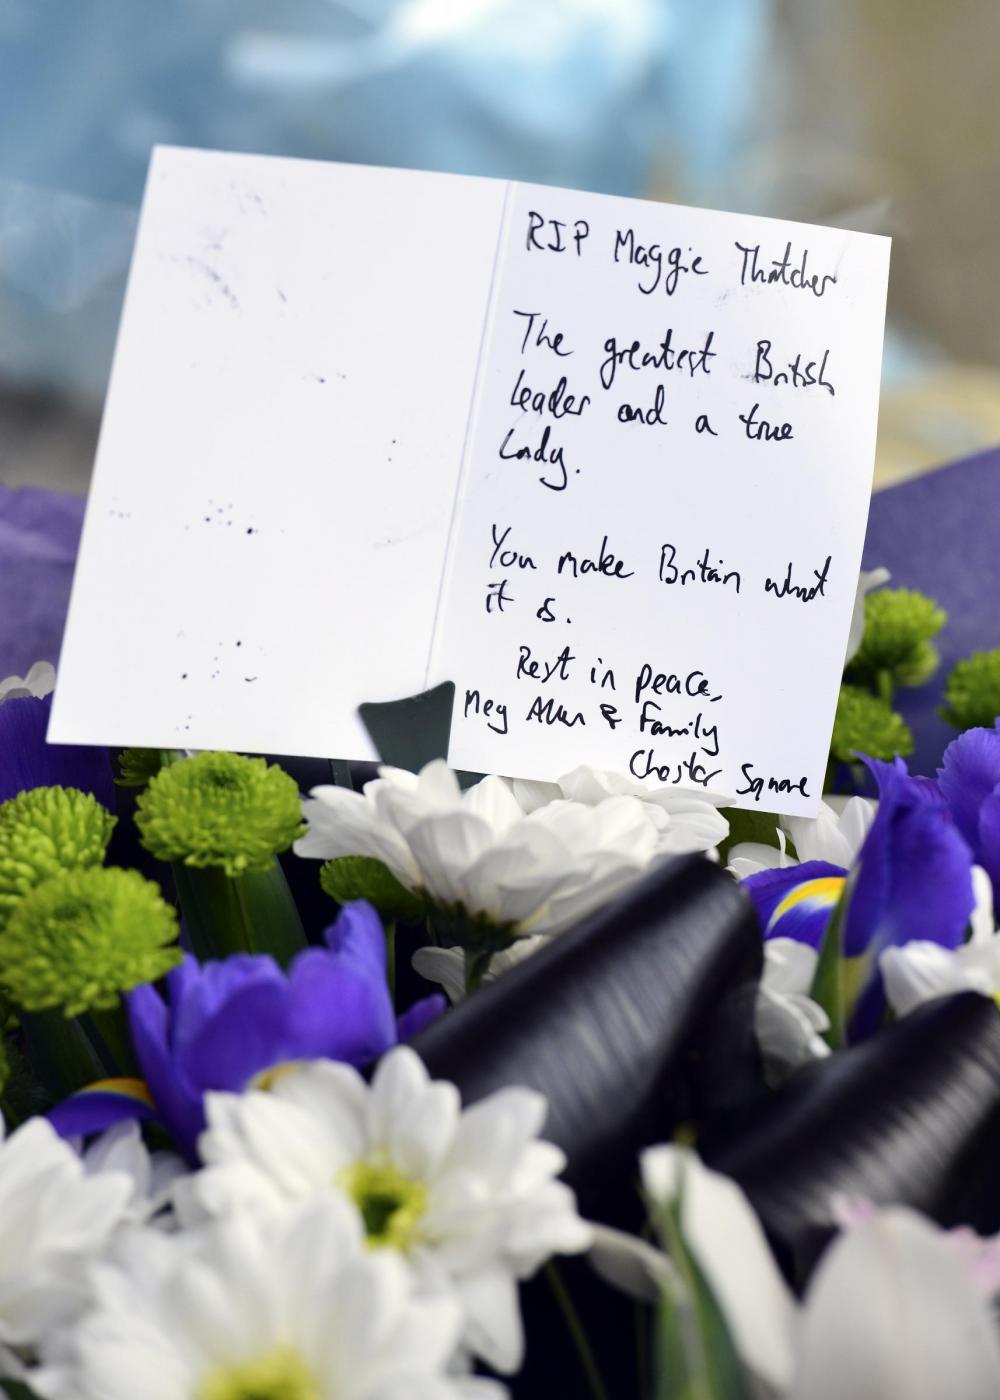 RIP Maggie Thatcher
The greatest British
leader and a true
Lady.
You make Britain what
it is.
Rest in peace,
Meg Allan & Family
Chester Square